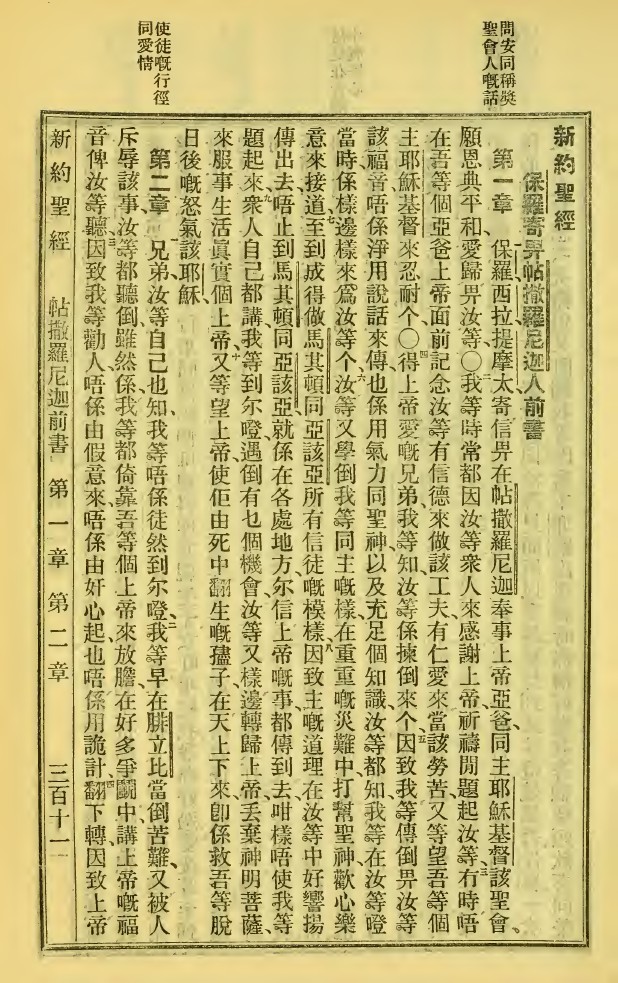 問安同稱獎
聖會人嘅話
使徒嘅行徑
同愛情
新約聖經
保羅寄畀帖撒羅尼迦人前書
第一章 保羅西拉提摩太寄信畀在帖撒羅尼迦奉事上帝亞爸同主耶穌基督該聖會、
願恩典平和愛歸畀汝等〇二我等時常都因汝等衆人來感謝上帝、祈禱閒題起汝等、冇時唔三
在吾等個亞爸上帝面前記念汝等有信德來做該工夫、有仁愛來當該勞苦、又等望吾等個
主耶穌基督來忍耐个〇四得上帝愛嘅兄弟、我等知汝等係揀倒來个、五因致我等傳倒畀汝等
該福音唔係淨用說話來傳、也係用氣力同聖神以及充足個知識、汝等都知我等在汝等噔
當時係樣邊樣來爲汝等个、六汝等又學倒我等同主嘅樣、在重重嘅災難中打幫聖神歡心樂
意來接道、七至到成得做馬其頓同亞該亞所有信徒嘅模樣、八因致主嘅道理在汝等中好響揚
傳出去、唔止到馬其頓同亞該亞、就係在各處地方、尔信上帝嘅事都傳到去、咁樣唔使我等
題起來、九衆人自己都講我等到尔噔遇倒有乜個機會、汝等又樣邊轉歸上帝、丟棄神明菩薩、
來服事生活眞實個上帝、十又等望上帝、使佢由死中翻生嘅孻子在天上下來、卽係救吾等脫
日後嘅怒氣該耶穌、
第二章 一兄弟、汝等自己也知、我等唔係徒然到尔噔、二我等早在腓立比當倒苦難、又被人
斥辱、該事汝等都聽倒、雖然係、我等都倚靠吾等個上帝來放膽、在好多爭鬭中、講上帝嘅福
音俾汝等聽、三因致我等勸人、唔係由假意來、唔係由奸心起、也唔係用詭計、四翻下轉、因致上帝
新約聖經 帖撒羅尼迦前書 第一章 第二章 三百十一